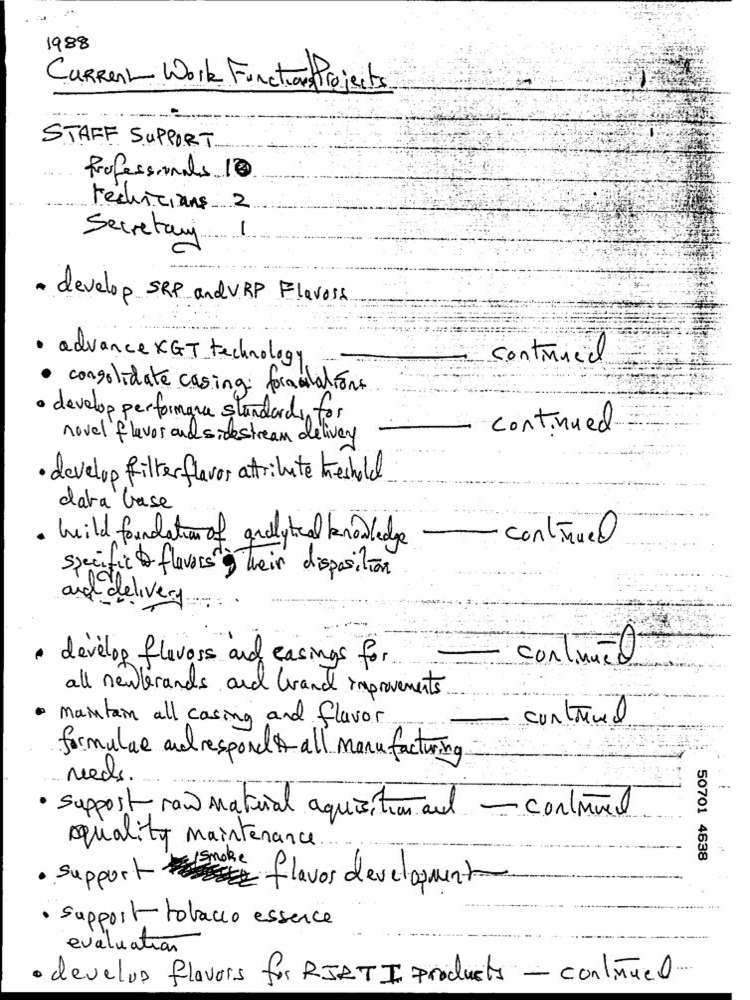 1988
Current Work Functions/Projects
STAFF SUPPORT
Professionals 10
Technicians 2
Secretary 1
• develop SRP and VRP Flavors
• advance KGT technology — continued
• consolidate casing formulations
• develop performance standards for
novel flavor and sidestream delivery — continued
• develop filter flavor attribute treshold
data base
• build foundation of analytical knowledge — continued
specific to flavors, their disposition
and delivery
• develop flavors and casings for — continued
all new brands and brand improvements
• maintain all casing and flavor — continued
formulae and respond to all manufacturing
needs.
• support raw material aquisition and — continued
quality maintenance
• support smoke flavor development
• support tobacco essence
evaluation
• develop flavors for RJRTI products — continued
50701 4638